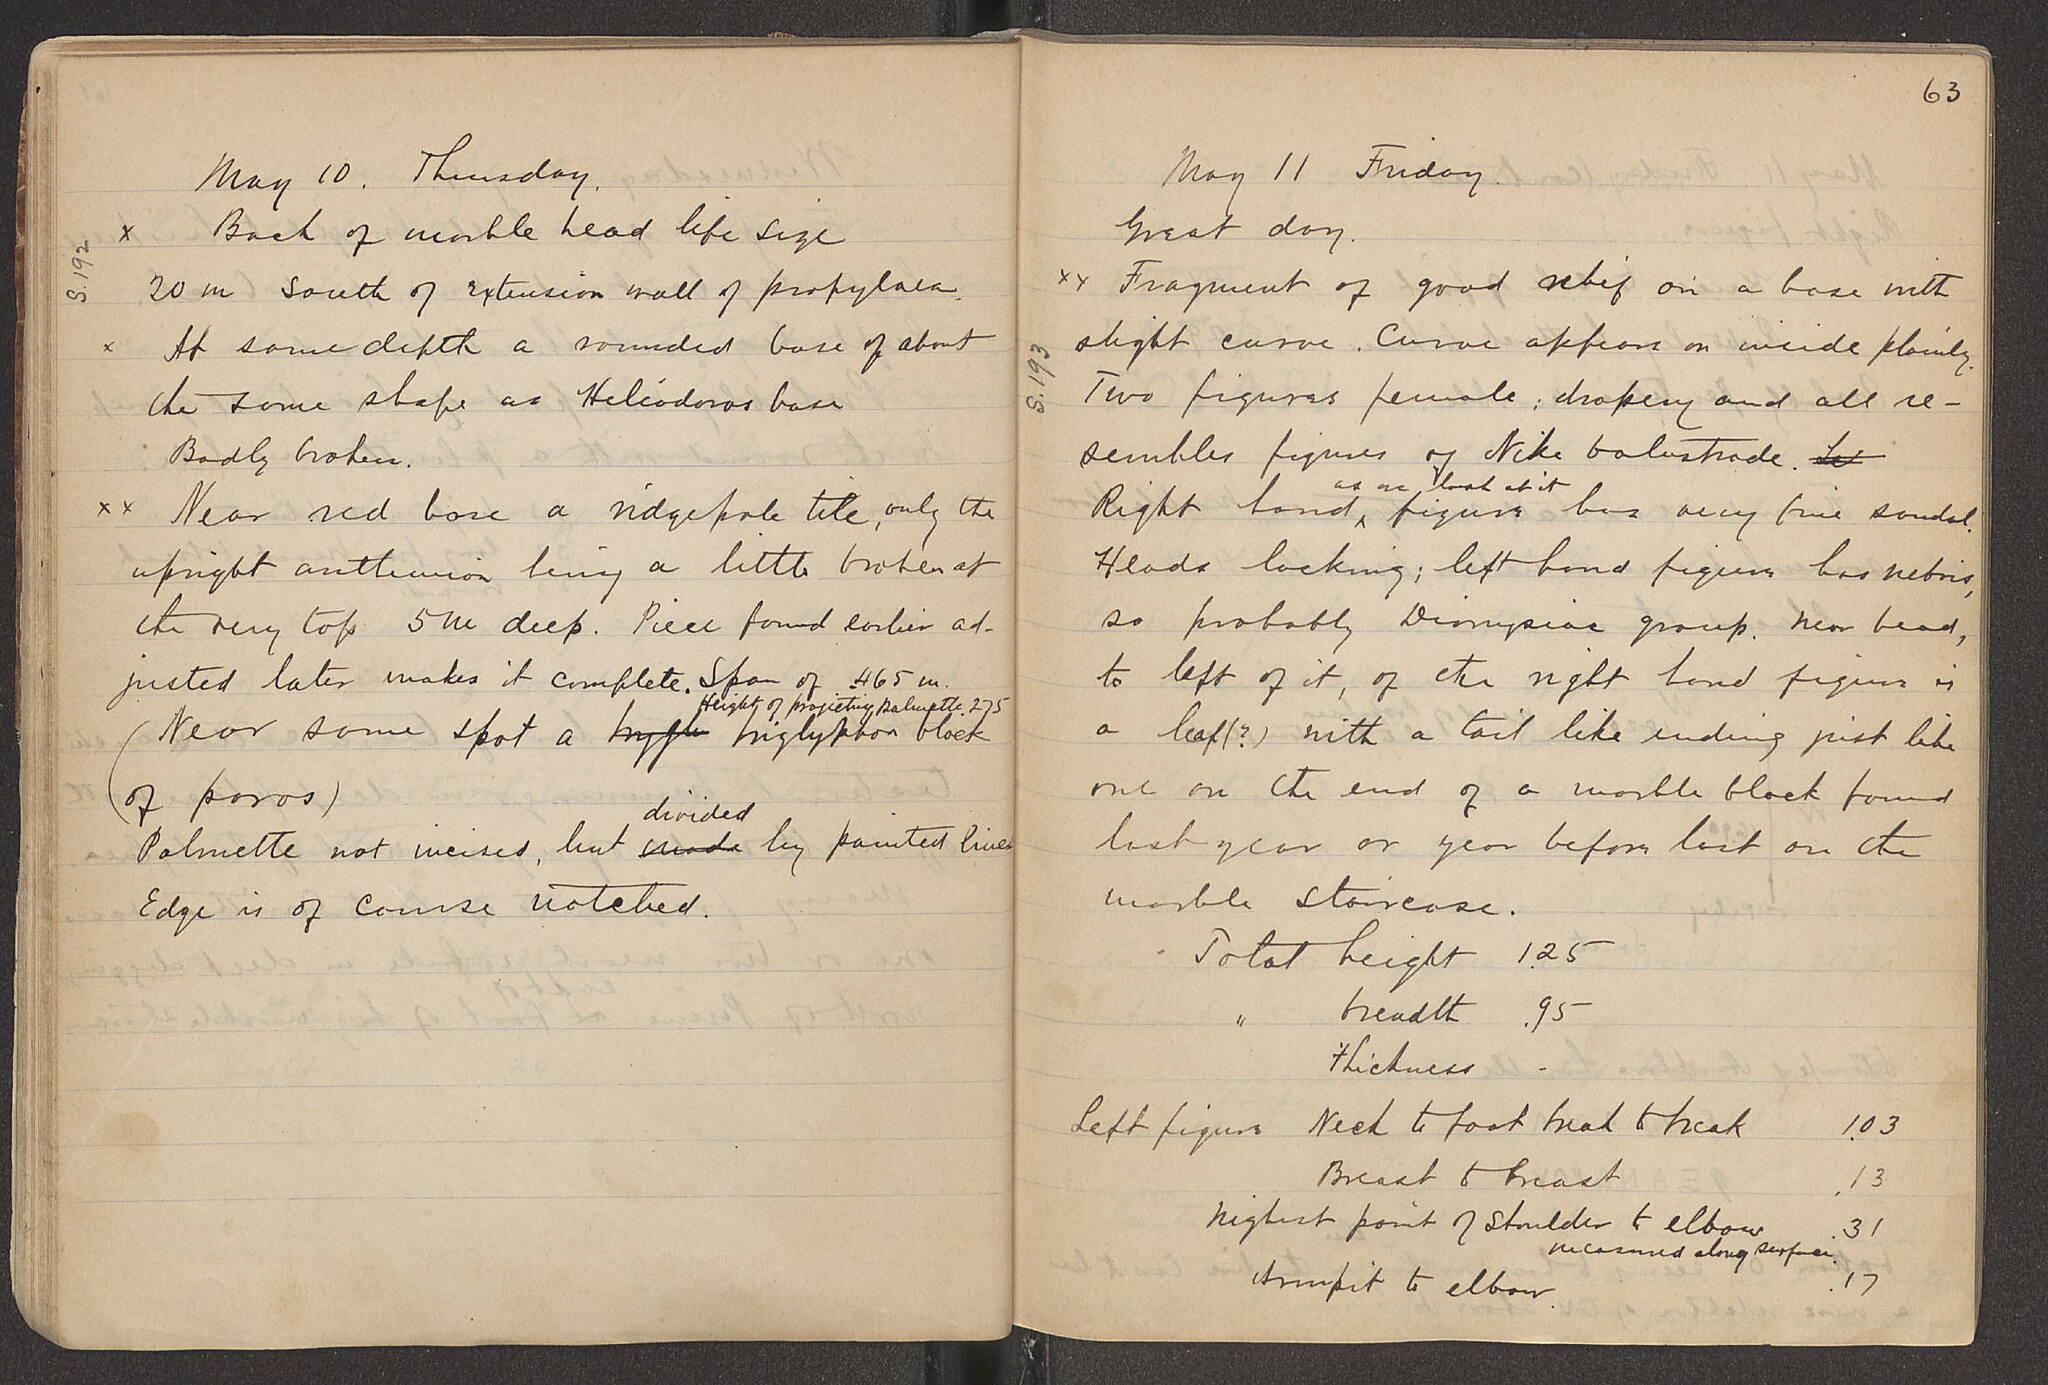 May 10. Thursday.
x Back of marble head life size
S. 192
20 m south of extension wall of propylaea.
x At same depth a rounded base of about
the same shape as Heliodoros base
Badly broken.
xx Near red base a ridgepole tile, only the
upright anthemion being a little broken at
the very top 5m deep. Piece found earlier ad-
justed later makes it complete. Span of .465 m.
Height of projecting Palmette .275
(Near same spot a triglyphon block
of poros)
divided
Palmette not incised, but made by painted lines
Edge is of course notched.
63
May 11 Friday.
Great day.
xx Fragment of good relief on a base with
slight curve. Curve appears on inside plainly.
S. 193
Two figures female; drapery and all re-
sembles figures of Nike balustrade.
as one look at it
Right hand ^ figure has very fine sandal.
Heads lacking; left hand figure has nebris,
so probably Dionysiac group. Near head,
to left of it, of the right hand figure is
a leaf(?) with a tail like ending just like
one on the end of a marble block found
last year or year before last on the
marble staircase.
Total height 1.25
" breadth .95
Thickness -
Left figure Neck to foot break to break 1.03
Breast to breast .13
Highest point of shoulder to elbow .31
measured along surface.
Armpit to elbow. .17